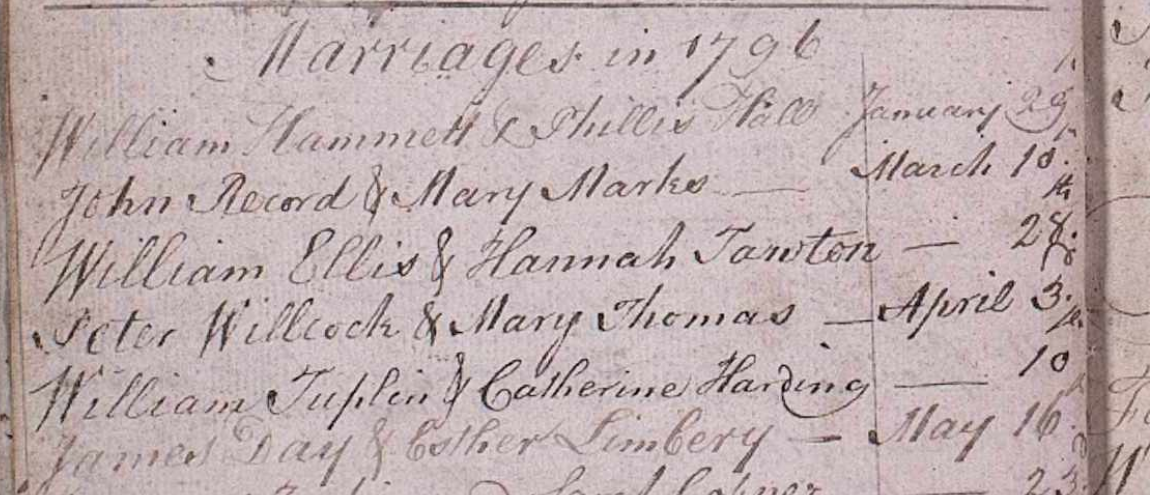 Marriages in 1796
William Hammett & Phillis Hall January 29
John Record & Mary Marks — March 10.
William Ellis & Hannah Tawton — 28.
Peter Willcock & Mary Thomas — April 3.
William Tuplin & Catherine Harding — 10
James Day & Esther Limbery — May 16.
23.